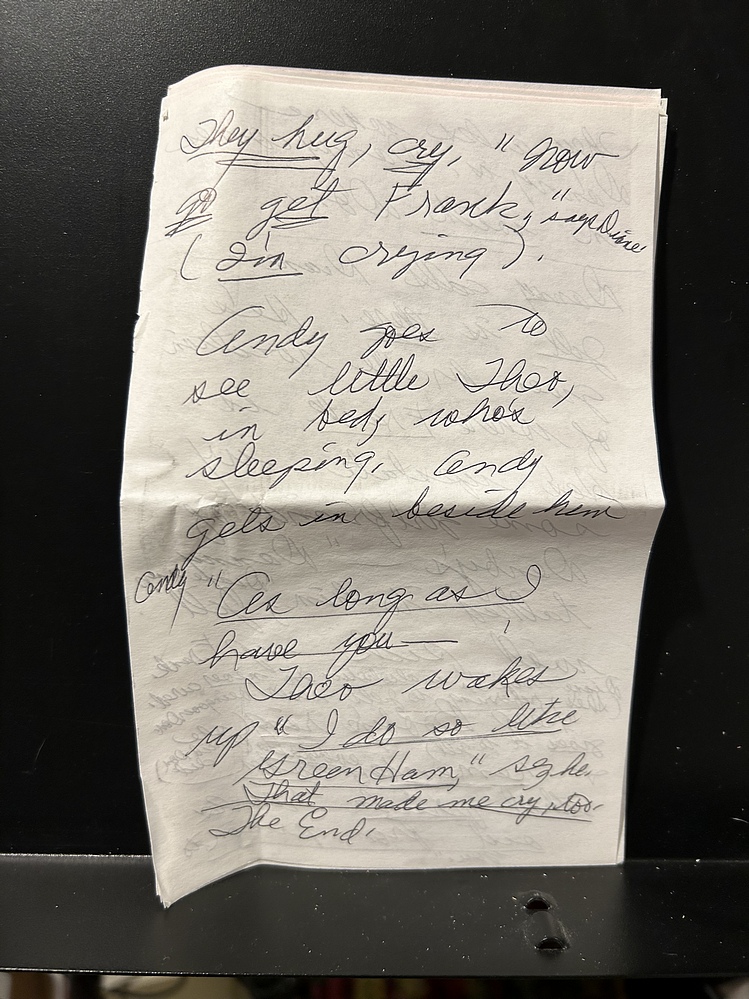 They hug, cry, " now
go get Frank," says Diane
(I'm crying).
Andy goes to
see little Theo,
in bed, who's
sleeping. Andy
gets in beside him
Andy "As long as I
have you—
Theo wakes
up "I do so like
Green Ham," sz he.
That made me cry, too.
The End.